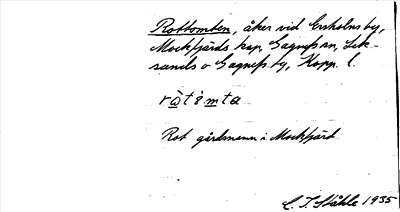 Rottomten, åker vid Erikolns by,
Mockfjärds kap, Gagnefs sn, Lek-
sands o Gagnefs tg, Kopp. l.
ròtåmta
Rot gårdsnamn i Mockfjärd
C. I. Ståhle 1935